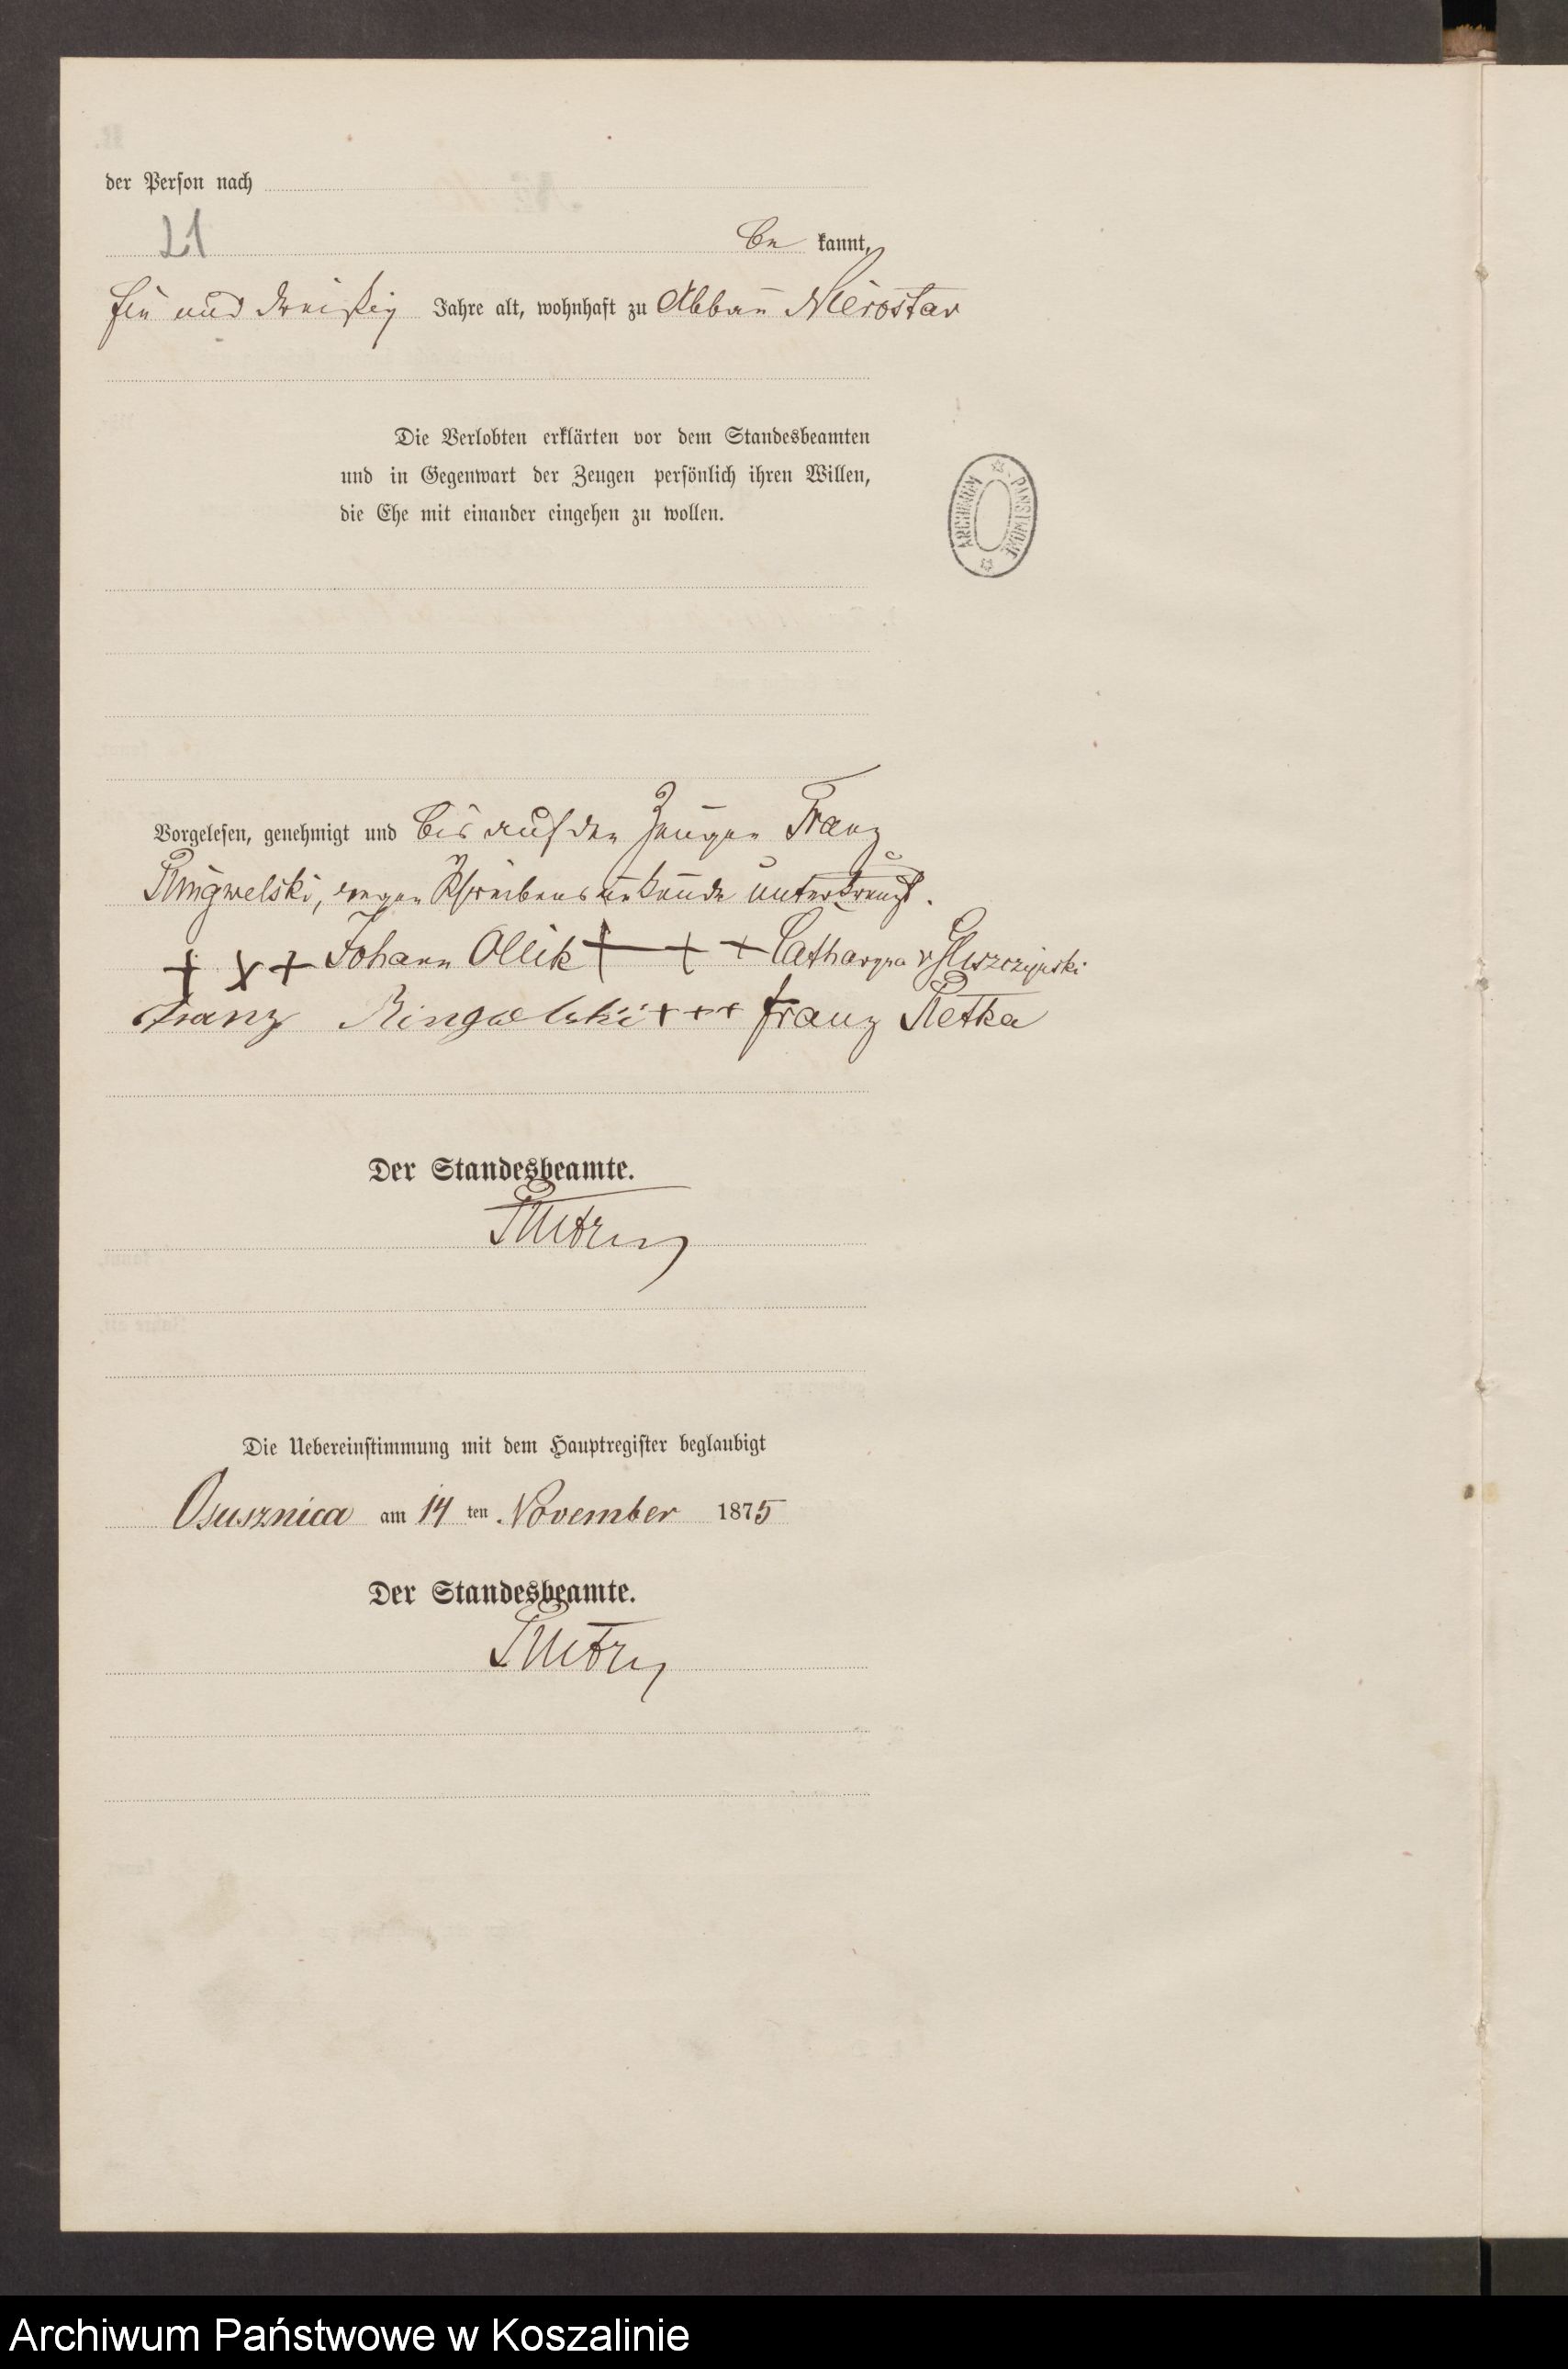 der Person nach
21
be kannt,
und dreißig Jahre alt, wohnhaft zu Abbau
Die Verlobten erklärten vor dem Standesbeamten
und in Gegenwart der Zeugen persönlich ihren Willen,
die Ehe mit einander eingehen zu wollen.
ARCHIWUM PAŃSTWOWE
Vorgelesen, genehmigt und bis auf den Zeugen Franz
wegen Schreibensunkunde unterkreuzt.
+ x + Johann Ollik + + + Catharyna v
Franz Ringwelski + + + Franz Retka
Der Standesbeamte.
Die Uebereinstimmung mit dem Hauptregister beglaubigt
Osusznica am 14 ten November 1875
Der Standesbeamte.
Archiwum Państwowe w Koszalinie